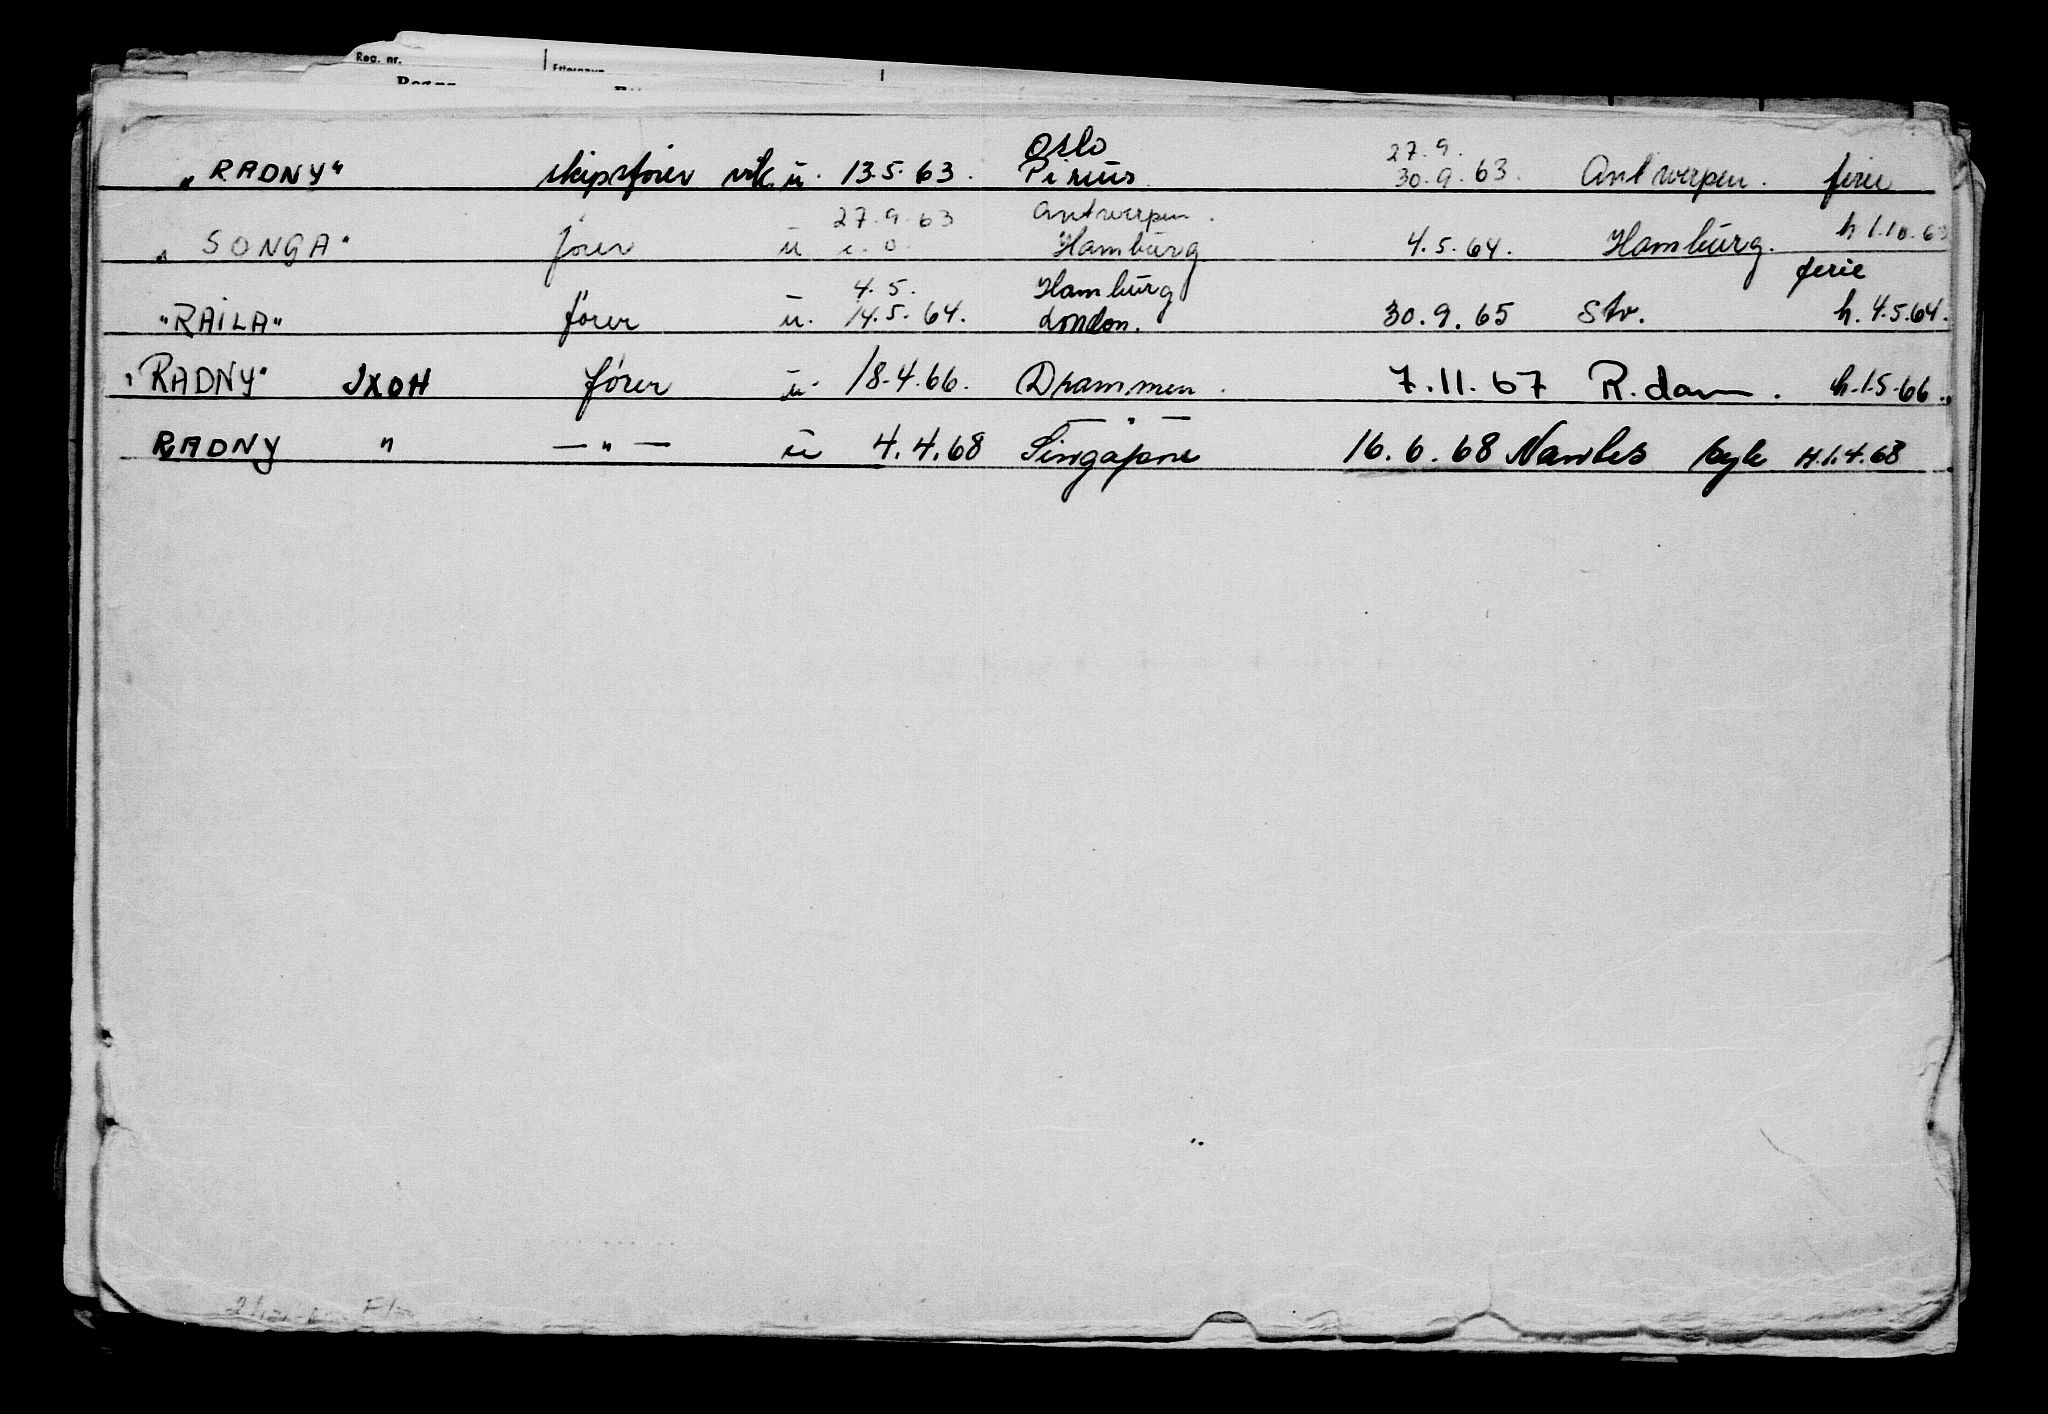 Reg. nr.
„RADNY" skipsfører vik. u. 13.5.63. Oslo Pireus 27.9. 30.9.63. Antwerpen. ferie
„SONGA" fører u 27.9.63 Antwerpen. Hamburg 4.5.64. Hamburg. h 1.10.63 ferie
"RAILA" fører u. 4.5. 14.5.64. Hamburg London. 30.9.65 Stv. h. 4.5.64.
"RADNY" JXOH fører u. 18.4.66. Drammen. 7.11.67 R.dam. h.1.5.66.
RADNY " —"— u 4.4.68 Singapore 16.6.68 Nantes syk H.1.4.68